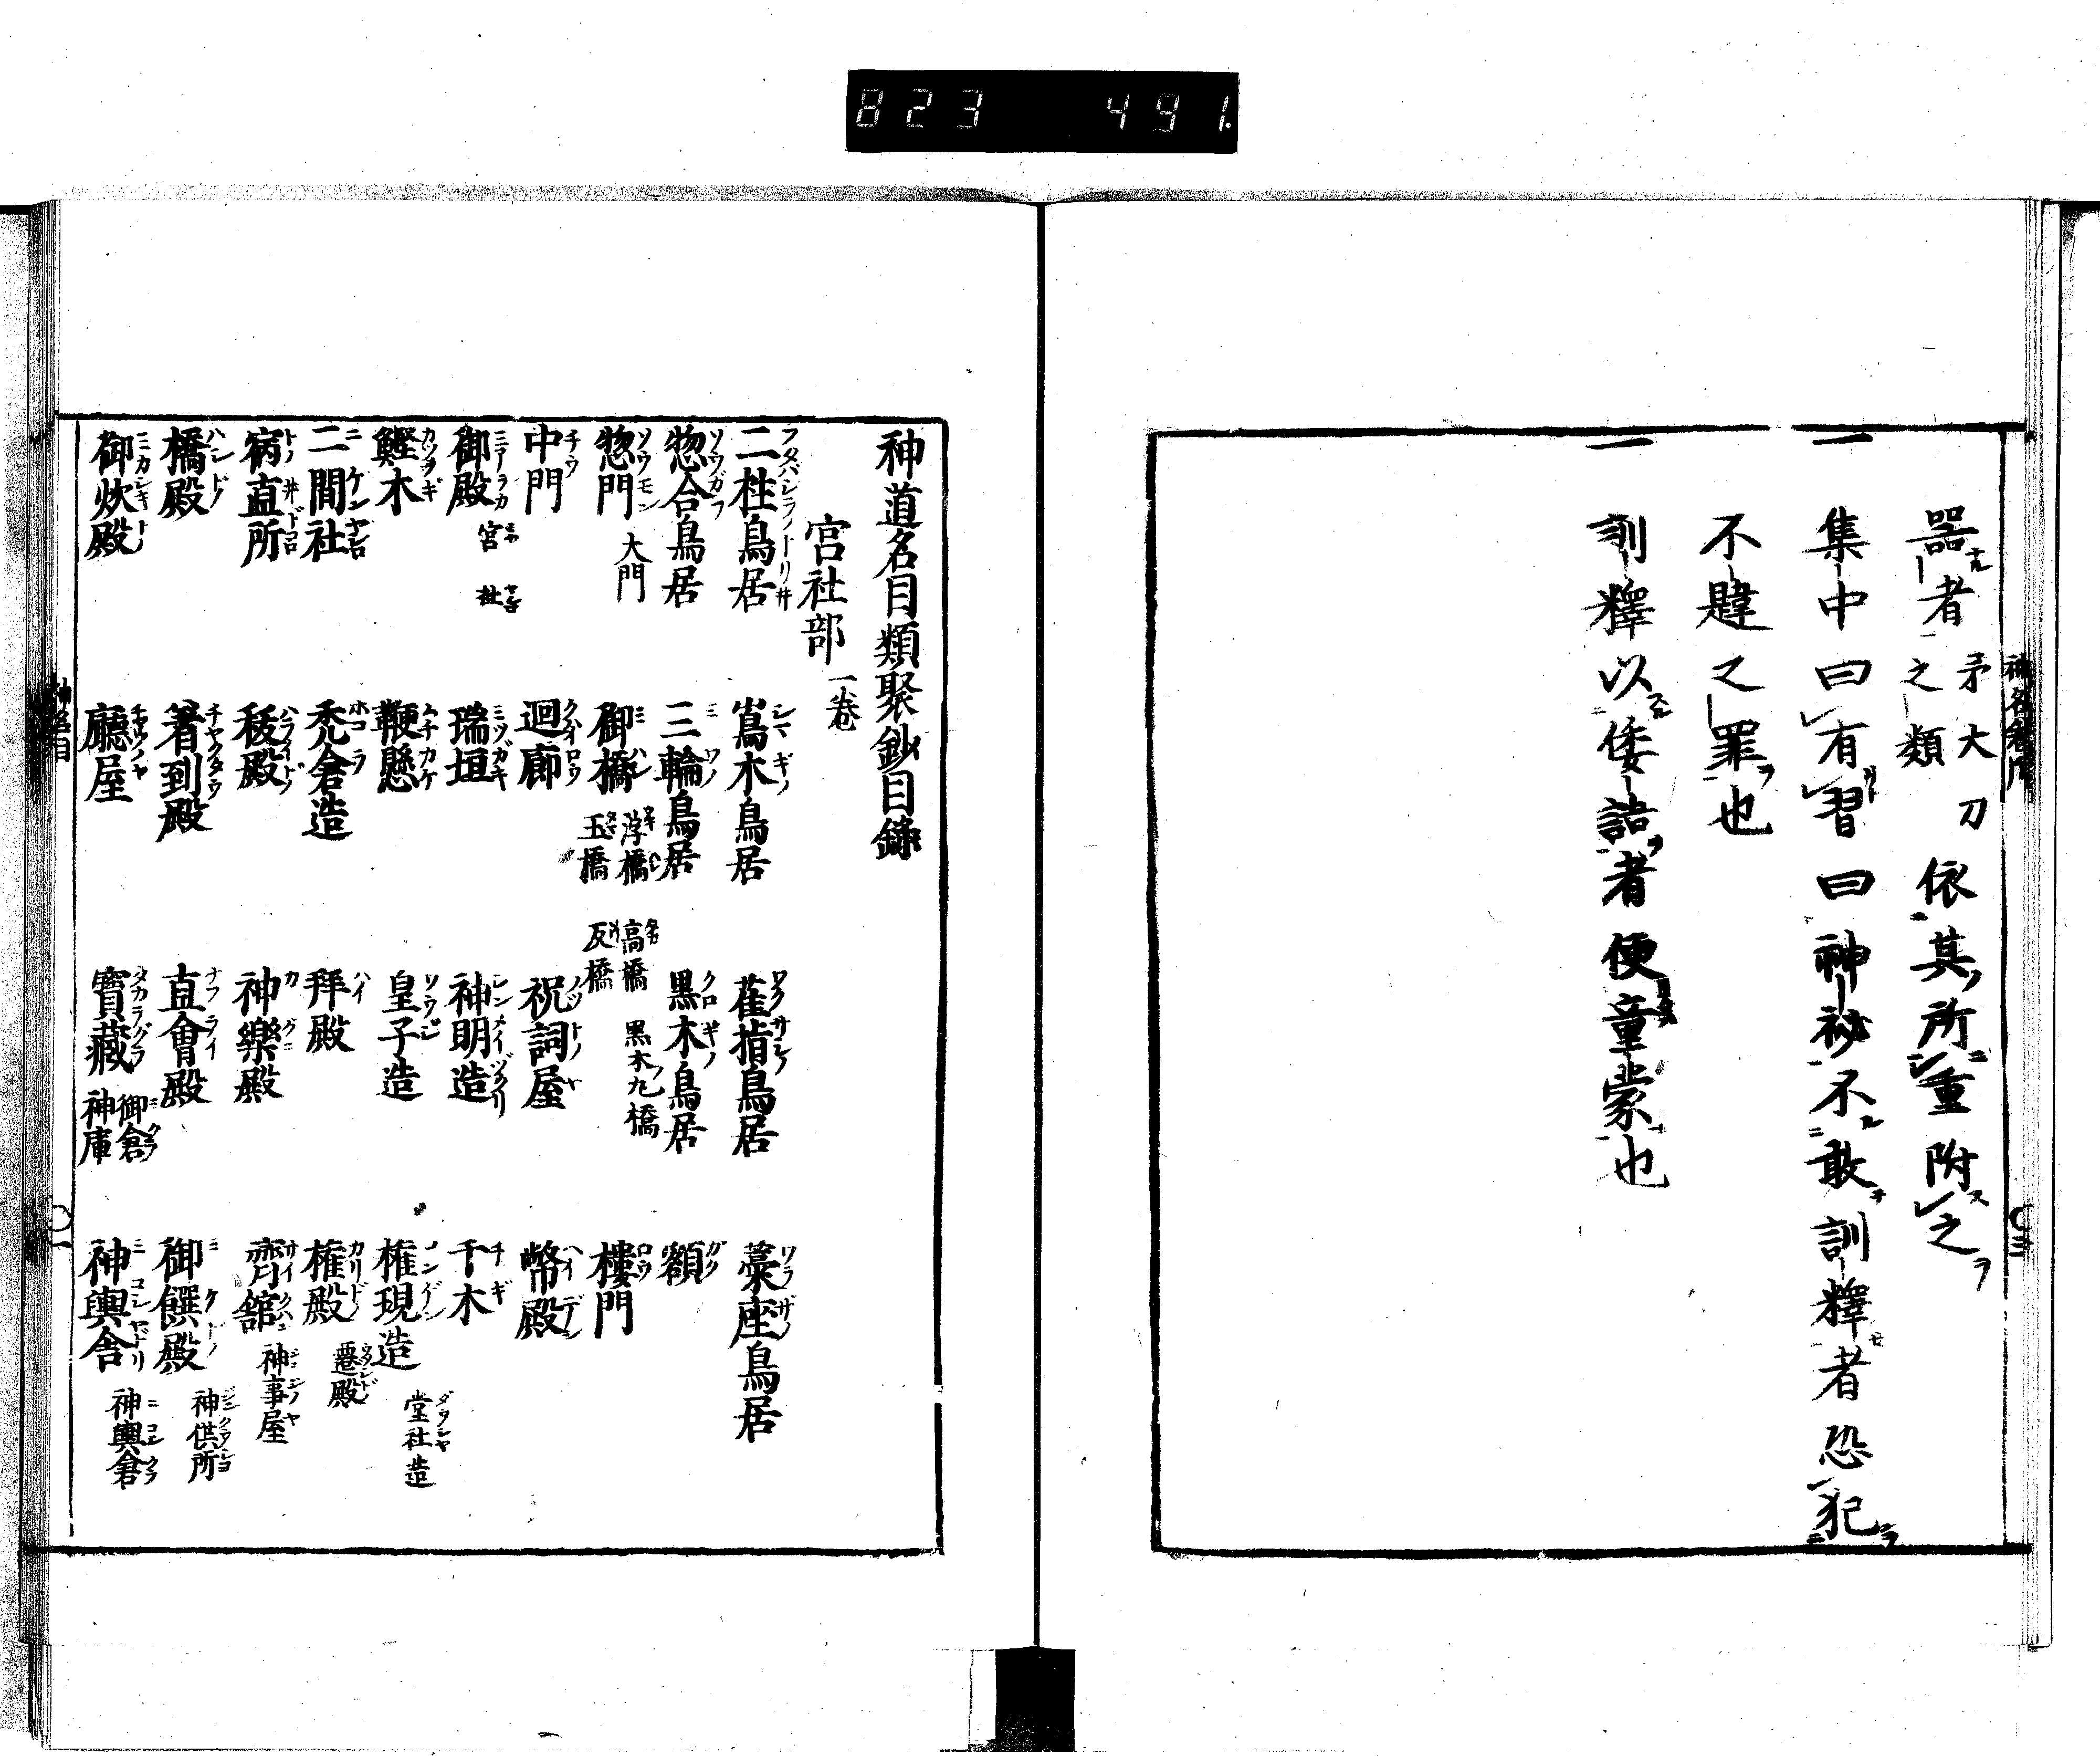 823 491.
器者矛大刀之類依其所重附之
一 集中曰有習曰神秘不敢訓釋者恐犯
不韙之罪也
一 訓釋以倭語者便童蒙也
神道名目類聚鈔目錄
宮社部 一卷
二柱鳥居 嶌木鳥居 雀指鳥居 藁座鳥居
惣合鳥居 三輪鳥居 黒木鳥居 額
惣門 大門 御橋 浮橋 玉橋 高橋 反橋 黒木丸橋 樓門
中門 迴廊 祝詞屋 幣殿
御殿 宮 社 瑞垣 神明造 千木
鰹木 鞭懸 皇子造 権現造 堂社造
二間社 禿倉造 拜殿 権殿 遷殿
宿直所 祓殿 神樂殿 齊舘 神事屋
橋殿 著到殿 直會殿 御饌殿 神供所
御炊殿 廳屋 寶藏 御倉 神庫 神輿舎 神輿倉